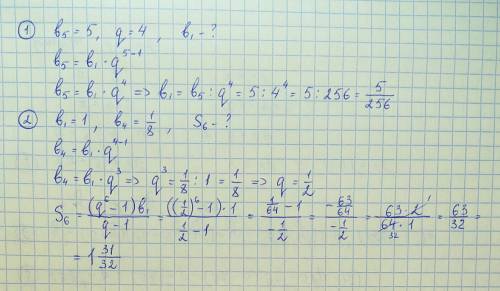 ① b₅ = 5, q = 4, b₁ - ?
b₅ = b₁ · q⁵⁻¹
b₅ = b₁ · q⁴ => b₁ = b₅ : q⁴ = 5 : 4⁴ = 5 : 256 = 5/256
② b₁ = 1, b₄ = 1/8, S₆ - ?
b₄ = b₁ · q⁴⁻¹
b₄ = b₁ · q³ => q³ = 1/8 : 1 = 1/8 => q = 1/2
S₆ = (q⁶ - 1) b₁ / (q - 1) = ((1/2)⁶ - 1) · 1 / (1/2 - 1) = (1/64 - 1) / (-1/2) = (-63/64) / (-1/2) = 63 · 2 1 / 64 32 · 1 = 63/32 =
= 1 31/32